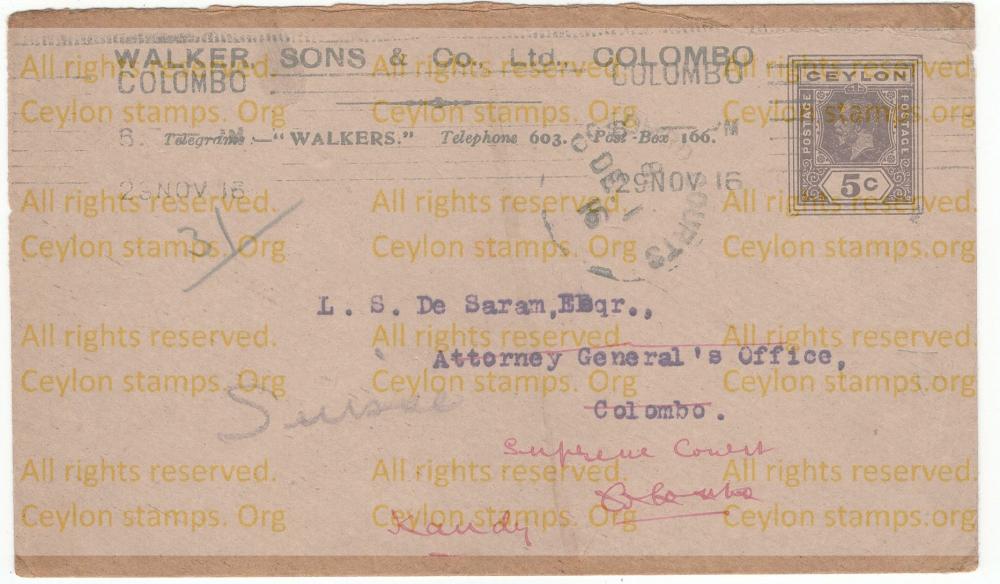 WALKER, SONS & Co., Ltd., COLOMBO
Telegrams:—"WALKERS." Telephone 603. Post-Box 166.
COLOMBO
COLOMBO
29 NOV 16
29 NOV 16
CEYLON
POSTAGE
POSTAGE
5c
COURTS
DE
16
3/
L. S. De Saram, Esqr.,
Attorney General's Office,
Colombo.
Supreme Court
Colombo
Kandy
All rights reserved.
Ceylon stamps. Org
All rights reserved.
Ceylon stamps. Org
All rights reserved.
Ceylon stamps. Org
All rights reserved.
Ceylon stamps. Org
All rights reserved.
Ceylon stamps. Org
All rights reserved.
Ceylon stamps. Org
All rights reserved.
Ceylon stamps. Org
All rights reserved.
Ceylon stamps. Org
All rights reserved.
Ceylon stamps. Org
All rights reserved.
Ceylon stamps. Org
All rights reserved.
Ceylon stamps. Org
All rights reserved.
Ceylon stamps. Org